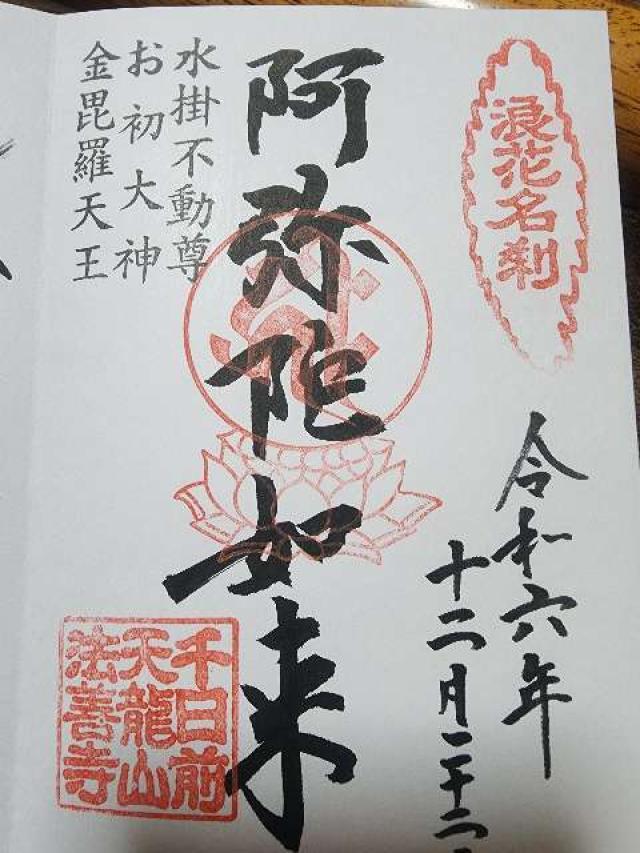 浪花名刹
令和六年
十二月二十二
阿弥陀如来
水掛不動尊
お初大神
金毘羅天王
千日前
天龍山
法善寺